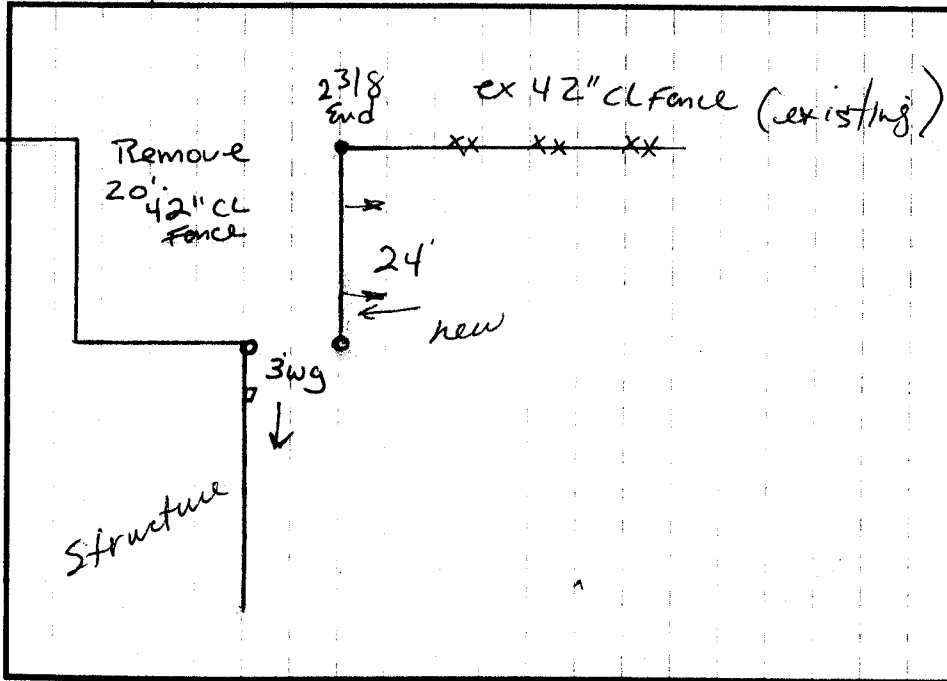 2 3/8
End
ex 42" CL Fence (existing)
Remove
20'
42" CL
Fence
24'
new
3'wg
Structure